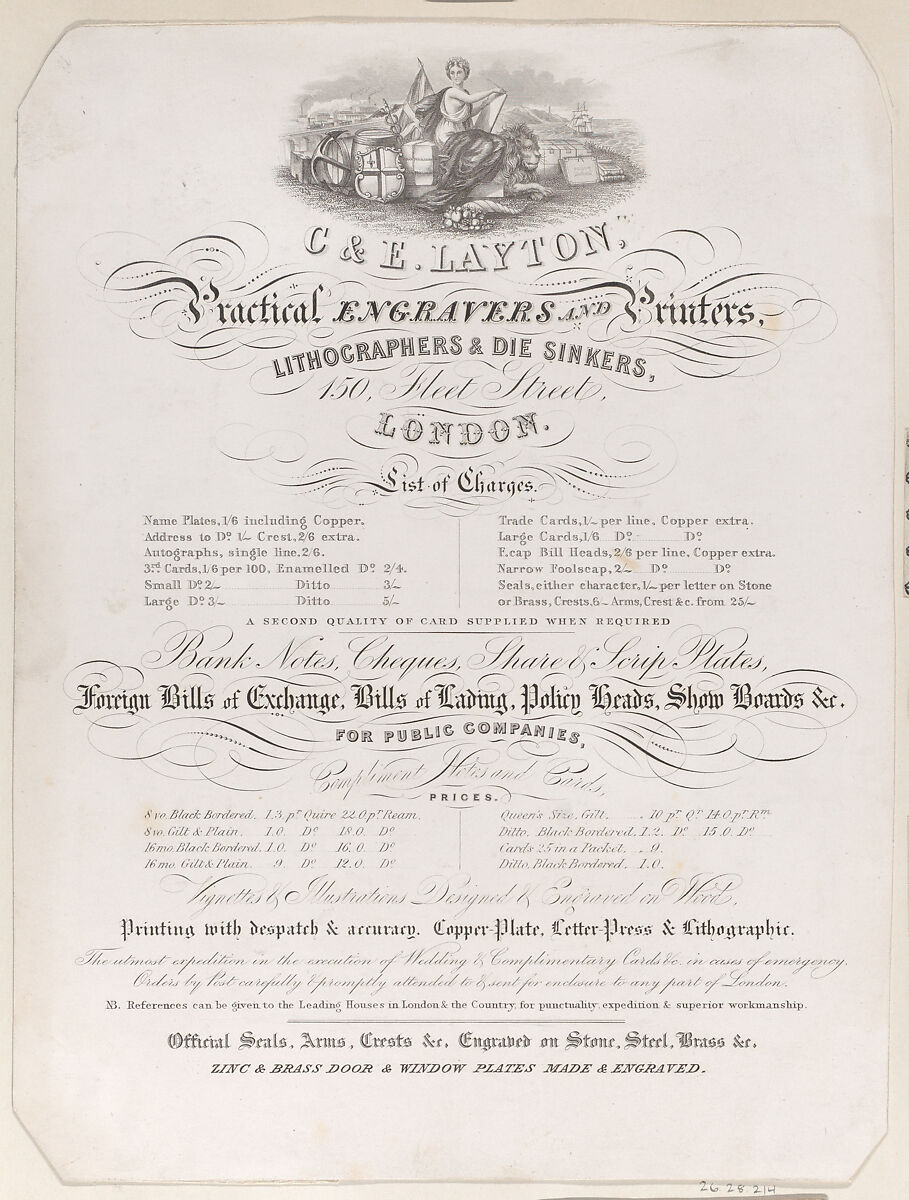 C & E. LAYTON,
Practical ENGRAVERS AND Printers,
LITHOGRAPHERS & DIE SINKERS,
150, Fleet Street,
LONDON.
List of Charges.
Name Plates, 1/6 including Copper.
Address to Do. 1/- Crest, 2/6 extra.
Autographs, single line, 2/6.
3rd Cards, 1/6 per 100, Enamelled Do. 2/4.
Small Do. 2/- Ditto 3/-
Large Do. 3/- Ditto 5/-
Trade Cards, 1/- per line, Copper extra.
Large Cards, 1/6 Do. Do.
F.cap Bill Heads, 2/6 per line, Copper extra.
Narrow Foolscap, 2/- Do. Do.
Seals, either character, 1/- per letter on Stone
or Brass, Crests, 6/- Arms, Crest &c. from 25/-
A SECOND QUALITY OF CARD SUPPLIED WHEN REQUIRED
Bank Notes, Cheques, Share & Scrip Plates,
Foreign Bills of Exchange, Bills of Lading, Policy Heads, Show Boards &c.
FOR PUBLIC COMPANIES,
Compliment Notes and Cards,
PRICES.
8vo. Black Bordered. 1.3. pr. Quire 22.0 pr. Ream.
8vo. Gilt & Plain. 1.0. Do. 18.0. Do.
16mo. Black Bordered. 1.0. Do. 16.0. Do.
16mo. Gilt & Plain. 9. Do. 12.0. Do.
Queen's Size, Gilt. 10 pr. Qr. 14.0 pr. Rm.
Ditto, Black Bordered. 1.2. Do. 15.0. Do.
Cards 25 in a Packet. 9.
Ditto, Black Bordered. 1.0.
Vignettes & Illustrations Designed & Engraved on Wood,
Printing with despatch & accuracy. Copper-Plate, Letter-Press & Lithographic.
The utmost expedition in the execution of Wedding & Complimentary Cards &c. in cases of emergency.
Orders by Post carefully & promptly attended to & sent for enclosure to any part of London.
NB. References can be given to the Leading Houses in London & the Country, for punctuality, expedition & superior workmanship.
Official Seals, Arms, Crests &c. Engraved on Stone, Steel, Brass &c.
ZINC & BRASS DOOR & WINDOW PLATES MADE & ENGRAVED.
26 28 214